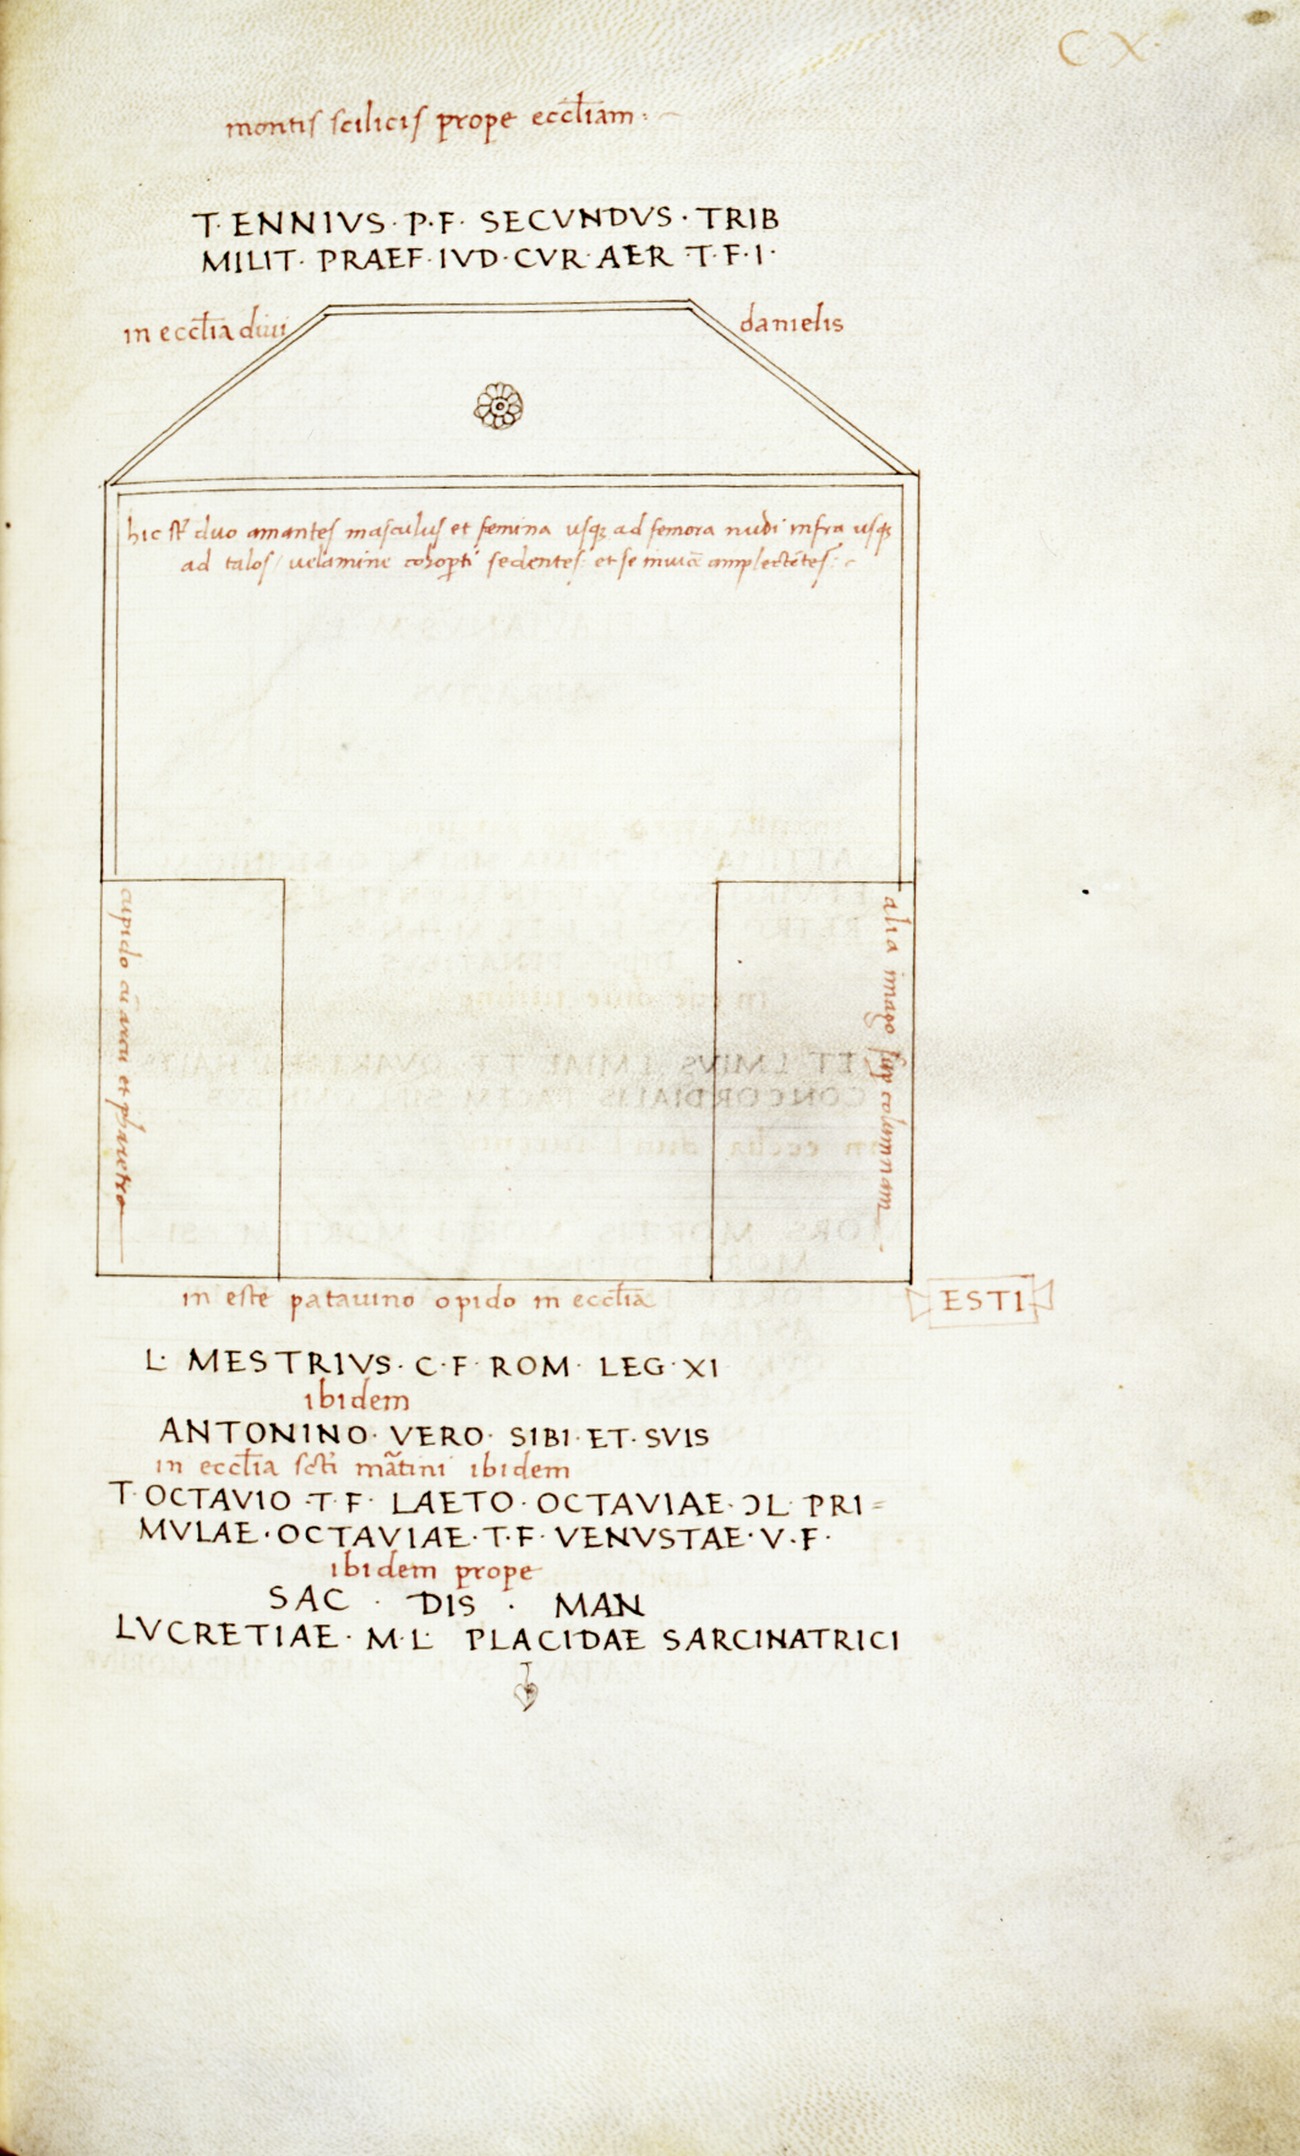 CX
montis scilicis prope eccl̄iam:
T· ENNIVS · P·F· SECVNDVS · TRIB
MILIT· PRAEF·IVD·CVR·AER T·F·I·
in eccl̄ia diui danielis
hic st̄ duo amantes masculus et femina usq; ad femora nudi infra usq;
ad talos / uelamine cohop̄ti sedentes: et se inuicē amplectētes:
cupido cū arcu et pharetra
alia imago sup columnam
in este patauino opido in eccl̄ia
ESTI
L· MESTRIVS · C·F· ROM· LEG·XI
ibidem
ANTONINO· VERO· SIBI·ET·SVIS
in eccl̄ia scti mātini ibidem
T·OCTAVIO ·T·F· LAETO·OCTAVIAE·ƆL· PRI=
MVLAE·OCTAVIAE·T·F·VENVSTAE·V·F·
ibidem prope
SAC · DIS · MAN
LVCRETIAE· M·L· PLACIDAE SARCINATRICI